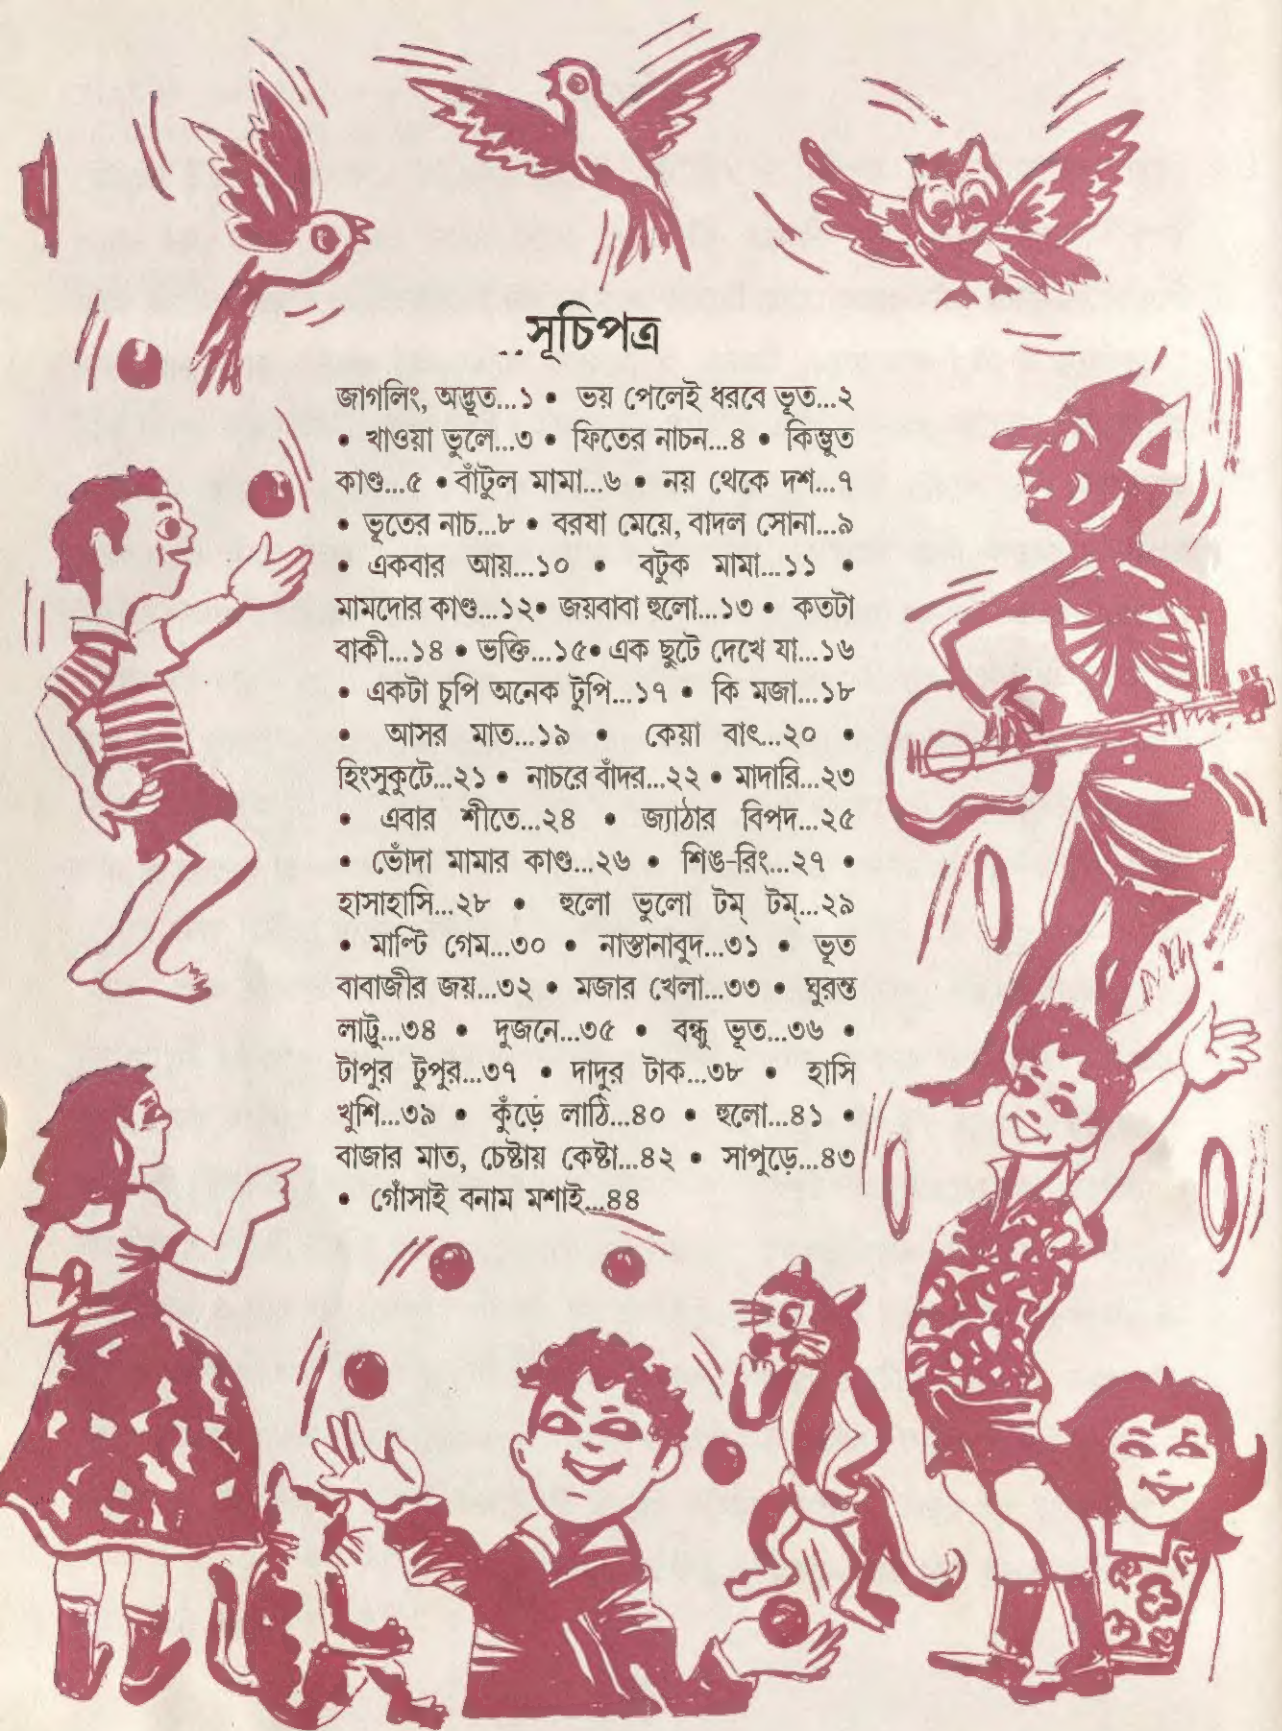 ..সূচিপত্র
জাগলিং, অদ্ভূত...১ • ভয় পেলেই ধরবে ভূত...২
• খাওয়া ভুলে...৩ • ফিতের নাচন...৪ • কিম্ভুত
কাণ্ড...৫ • বাঁটুল মামা...৬ • নয় থেকে দশ...৭
• ভূতের নাচ...৮ • বরষা মেয়ে, বাদল সোনা...৯
• একবার আয়...১০ • বটুক মামা...১১ •
মামদোর কাণ্ড...১২• জয়বাবা হুলো...১৩ • কতটা
বাকী...১৪ • ভক্তি...১৫• এক ছুটে দেখে যা...১৬
• একটা চুপি অনেক টুপি...১৭ • কি মজা...১৮
• আসর মাত...১৯ • কেয়া বাৎ...২০ •
হিংসুকুটে...২১ • নাচরে বাঁদর...২২ • মাদারি...২৩
• এবার শীতে...২৪ • জ্যাঠার বিপদ...২৫
• ভোঁদা মামার কাণ্ড...২৬ • শিঙ-রিং...২৭ •
হাসাহাসি...২৮ • হুলো ভুলো টম্ টম্...২৯
• মাল্টি গেম...৩০ • নাস্তানাবুদ...৩১ • ভূত
বাবাজীর জয়...৩২ • মজার খেলা...৩৩ • ঘুরন্ত
লাট্টু...৩৪ • দুজনে...৩৫ • বন্ধু ভূত...৩৬ •
টাপুর টুপুর...৩৭ • দাদুর টাক...৩৮ • হাসি
খুশি...৩৯ • কুঁড়ে লাঠি...৪০ • হুলো...৪১ •
বাজার মাত, চেষ্টায় কেষ্টা...৪২ • সাপুড়ে...৪৩
• গোঁসাই বনাম মশাই...৪৪